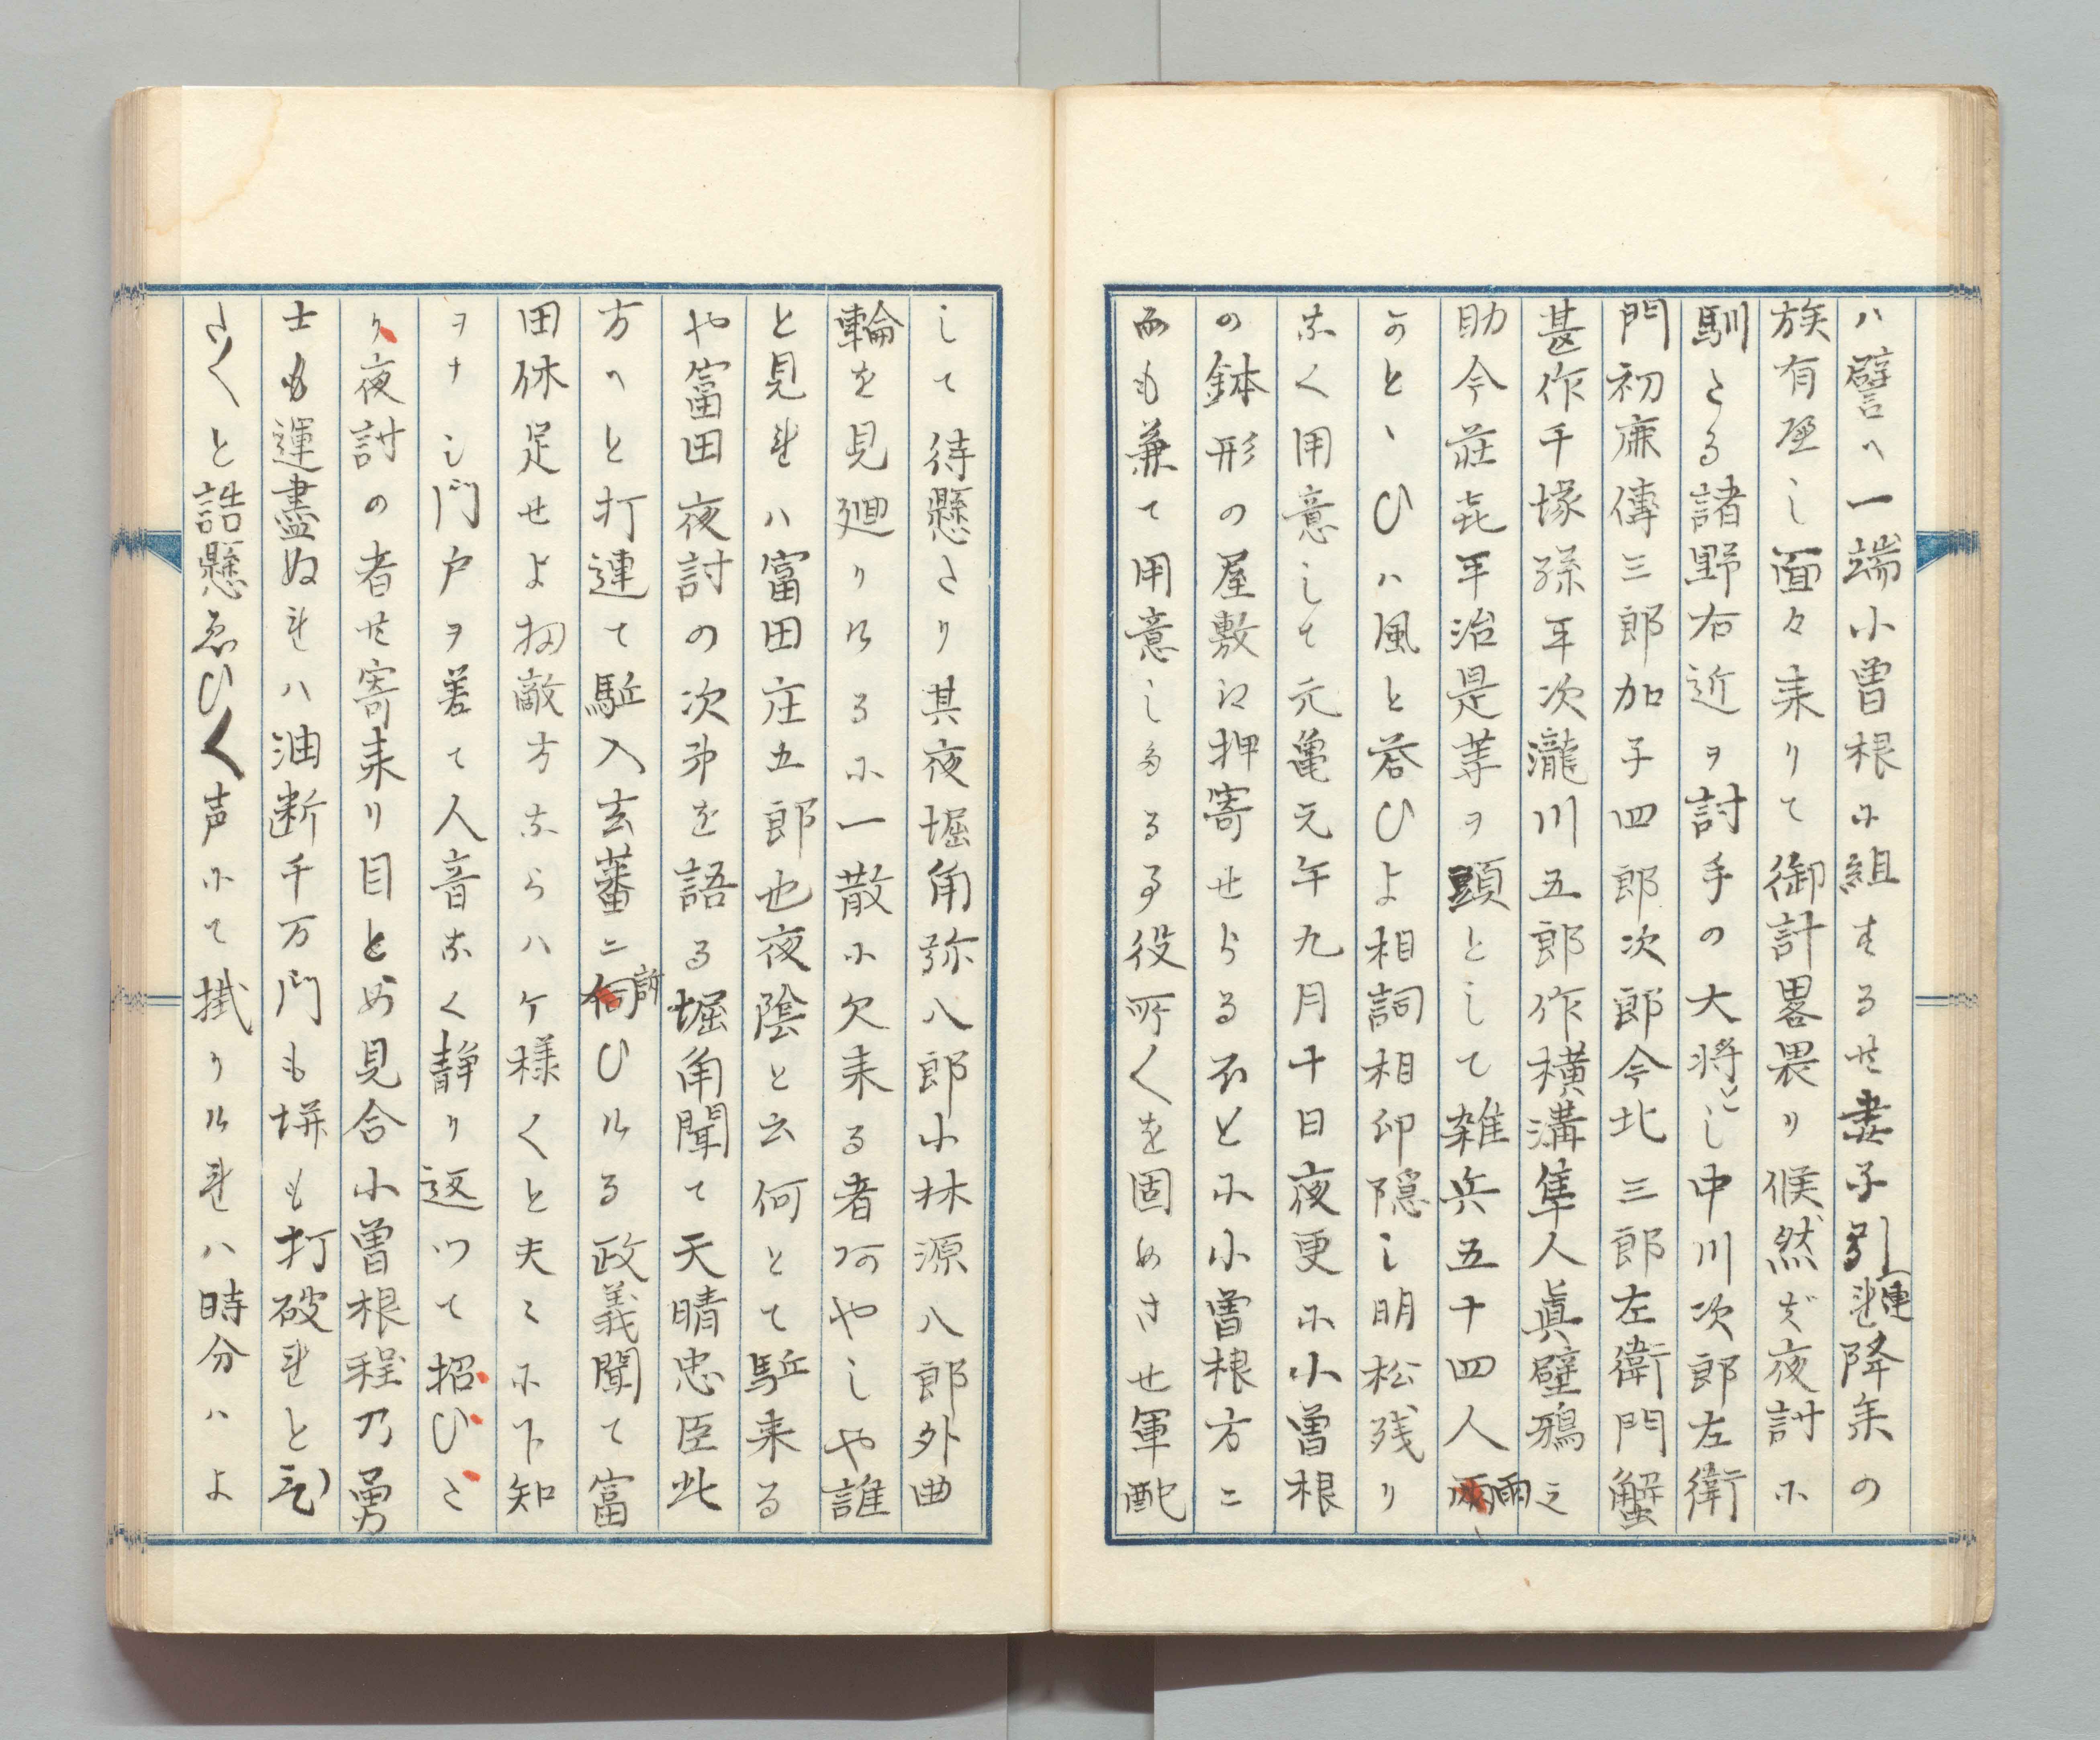 ハ譬へ一端小曽根ニ組するせ妻子引連降矣の
族有座し面々来りて御計畧畏り候然ば夜討に
馴たる諸野右近ヲ討手の大将とし中川次郎左衛
門初廉傳三郎加子四郎次郎今北三郎左衛門蟹
甚作千塚孫平次瀧川五郎作横溝隼人眞壁鴉之
助今荘㐂平治是等ヲ頭として雑兵五十四人雨
かとゝひハ風と荅ひよ相詞相印隠し明松残り
なく用意して元亀元午九月十日夜更に小曽根
の鉢形の屋敷江押寄せらる不とに小曽根方ニ
而も兼て用意しある事役所〱を固めさせ軍配
して待懸たり其夜堀角弥八郎小林源八郎外曲
輪を見廻りけるに一散に欠来る者阿やしや誰
と見れハ富田庄五郎也夜陰と云何とて駈来る
や富田夜討の次第を語る堀角聞て天晴忠臣此
方へと打連て駈入玄蕃ニ訴ひける政義聞て富
田休足せよ扨敵方ならハケ様〱と夫々に下知
ヲナし門戸ヲ差て人音なく静り返つて招びさ
り夜討の者共寄来り目とめ見合小曽根程乃勇
士も運盡ぬれハ油断千万門も塀も打破れと云
さ〱と詰懸ゑひ〱声にて掛りけれハ時分ハよ